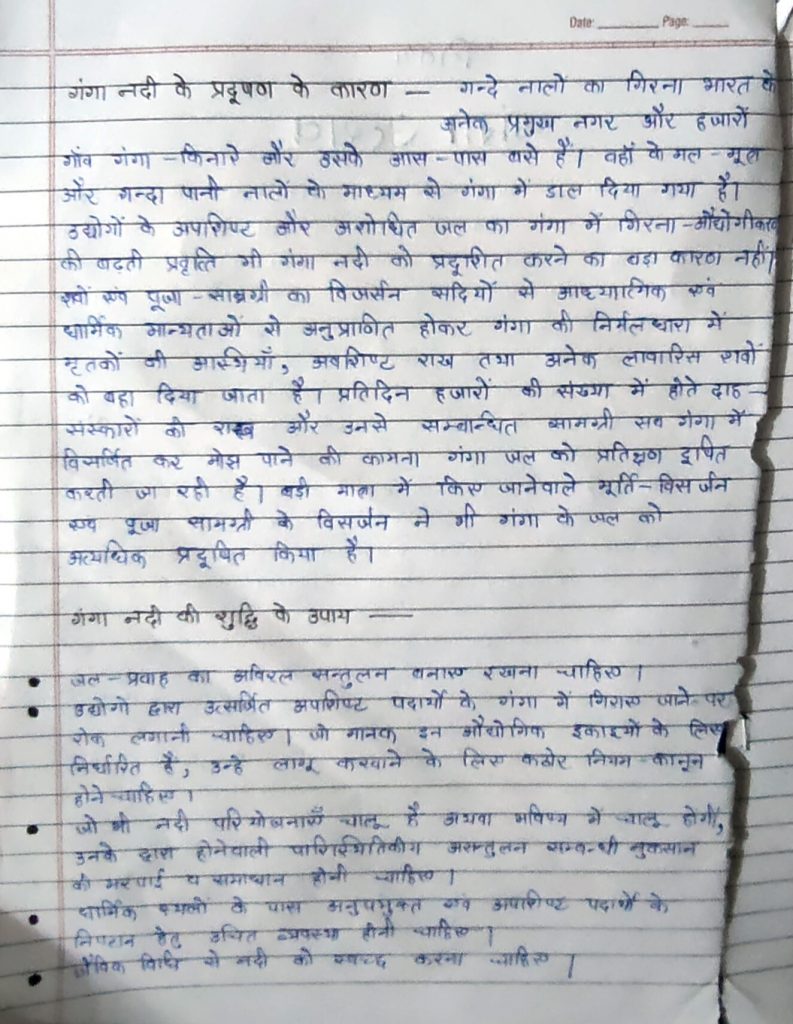 Date: ________ Page: _____
गंगा नदी के प्रदूषण के कारण — गन्दे नालों का गिरना भारत के
अनेक प्रमुख नगर और हजारों
गाँव गंगा - किनारे और उसके आस - पास बसे हैं। वहाँ के मल - मूत्र
और गन्दा पानी नालों के माध्यम से गंगा में डाल दिया गया है।
उद्योगों के अपशिष्ट और अशोधित जल का गंगा में गिरना - औद्योगीकरण
की बढ़ती प्रवृत्ति भी गंगा नदी को प्रदूशित करने का बड़ा कारण नहीं।
शवों एवं पूजा - सामग्री का विजर्सन सदियों से आध्यात्मिक एवं
धार्मिक मान्यताओं से अनुप्राणित होकर गंगा की निर्मल धारा में
मृतकों की अस्थियाँ, अवशिष्ट राख तथा अनेक लावारिस शवों
को बहा दिया जाता है। प्रतिदिन हजारों की संख्या में होते दाह -
संस्कारों की राख और उनसे सम्बन्धित सामग्री सब गंगा में
विसर्जित कर मोक्ष पाने की कामना गंगा जल को प्रतिक्षण दूषित
करती जा रही है। बड़ी मात्रा में किए जानेवाले मूर्ति - विसर्जन
एवं पूजा सामग्री के विसर्जन ने भी गंगा के जल को
अत्यधिक प्रदूषित किया है।
गंगा नदी की शुद्धि के उपाय —
• जल - प्रवाह का अविरल सन्तुलन बनाए रखना चाहिए।
• उद्योगो द्वारा उत्सर्जित अपशिष्ट पदार्थों के गंगा में गिराए जाने पर
रोक लगानी चाहिए। जो मानक इन औद्योगिक इकाइयों के लिए
निर्धारित है, उन्हे लागू करवाने के लिए कठोर नियम - कानून
होने चाहिए।
• जो भी नदी परियोजनाएँ चालू है अथवा भविष्य में चालू होगी,
उनके द्वारा होनेवाली पारिस्थितिकीय असन्तुलन सम्बन्धी नुकसान
की भरपाई व समाधान होनी चाहिए।
• धार्मिक स्थलों के पास अनुपयुक्त एवं अपशिष्ट पदार्थों के
निपटान हेतु उचित व्यवस्था होनी चाहिए।
• जैविक विधि से नदी को स्वच्छ करना चाहिए।